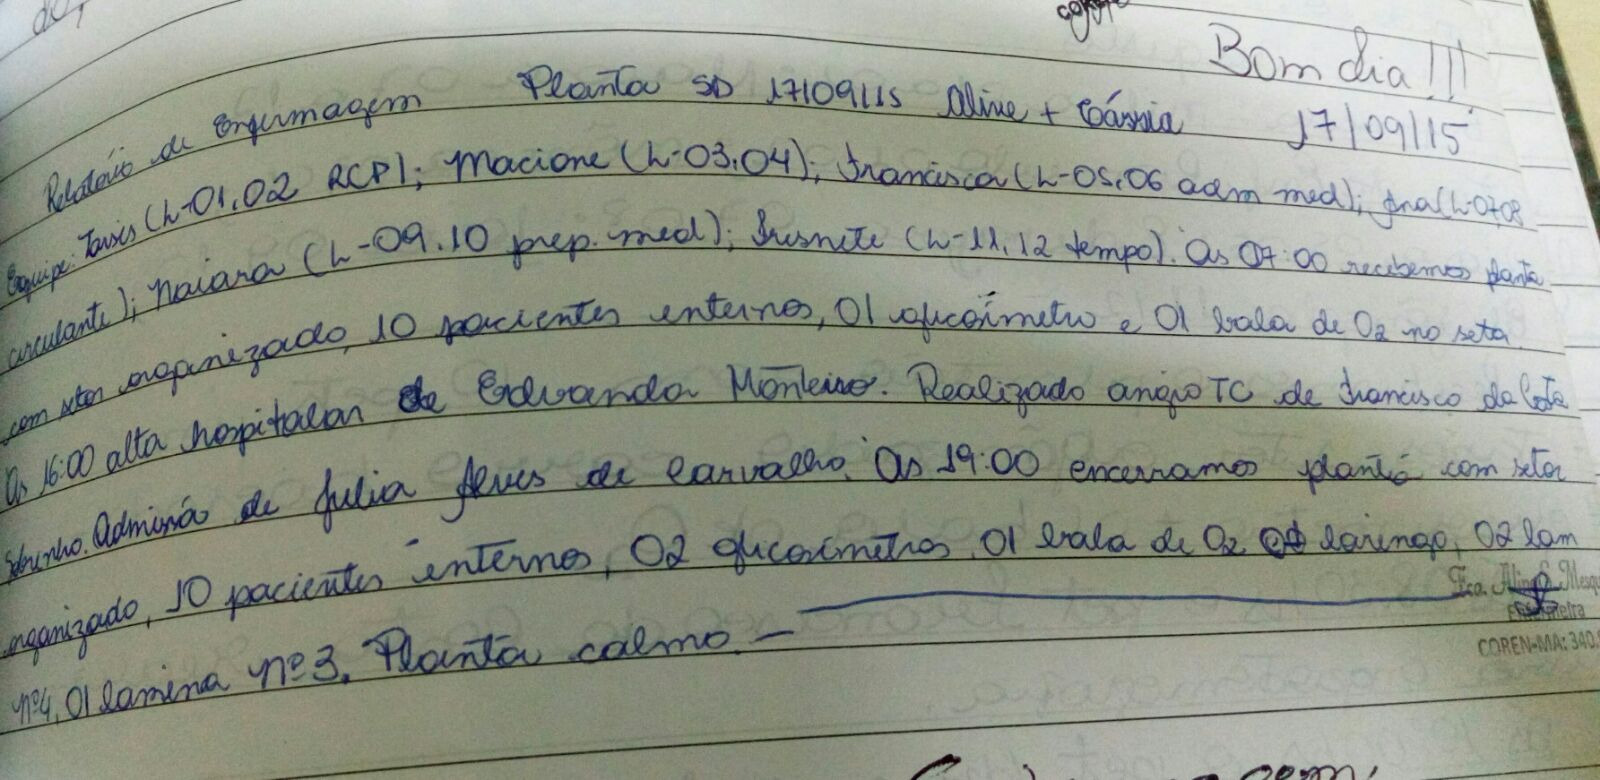 Bom dia!!!
Relatório de Enfermagem Plantão SD 17/09/15 Aline + Cássia 17/09/15
Equipe: Tarsis (L-01.02 RCP); Macione (L-03.04); Francisca (L-05.06 adm med); Ana (L-07.08
circulante); Naiara (L-09.10 prep. med); (L-11.12 tempo). Às 07:00 recebemos plantão
com setor organizado, 10 pacientes internos, 01 glicosímetro e 01 bala de O2 no setor.
Às 16:00 alta hospitalar de Edvando Monteiro. Realizado angioTC de Francisco da Costa
Sobrinho. Admissão de Julia Alves de Carvalho. Às 19:00 encerramos plantão com setor
organizado, 10 pacientes internos, 02 glicosímetros, 01 bala de O2, laringo, 02 lam
nº4, 01 lamina nº3. Plantão calmo. —
Mesqu
Enfermeira
COREN-MA: 340.